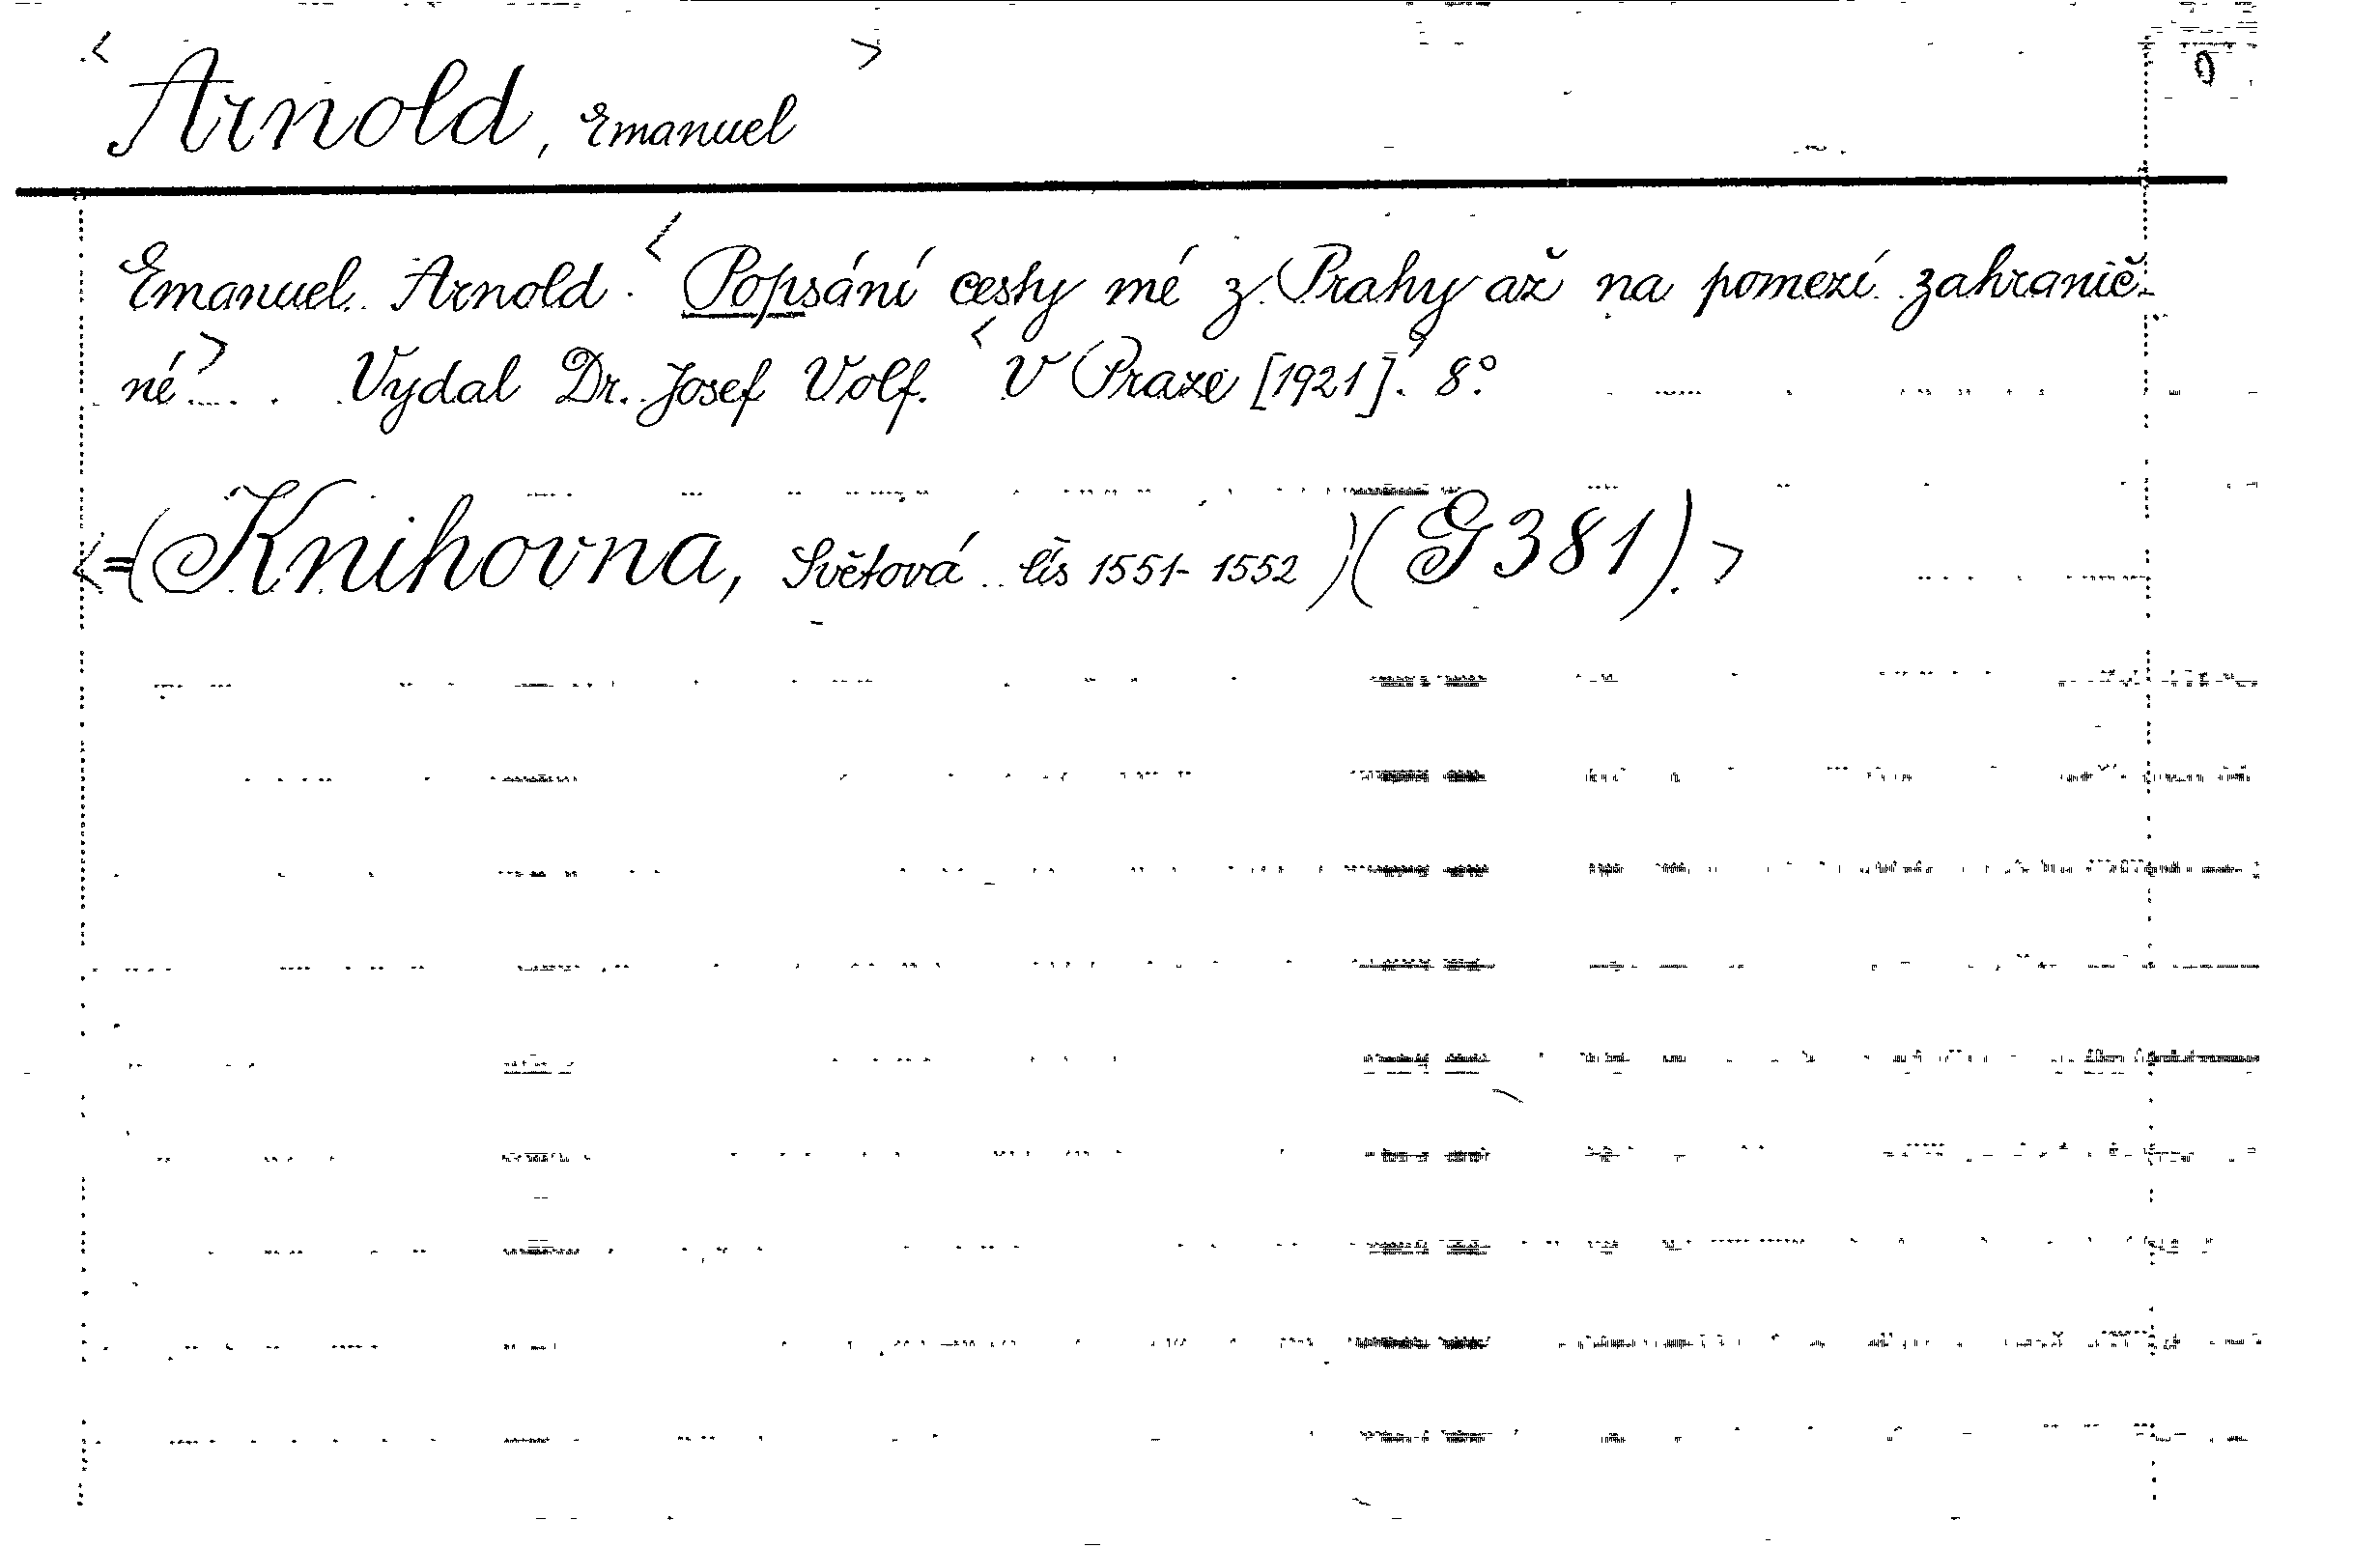 <Arnold, Emanuel>
Emanuel Arnold. <Popsání cesty mé z Prahy až na pomezí zahranič-
né> ... Vydal Dr. Josef Volf. <V Praze [1921]. 8°.
<=(Knihovna, Světová čís 1551-1552)(G 381).>